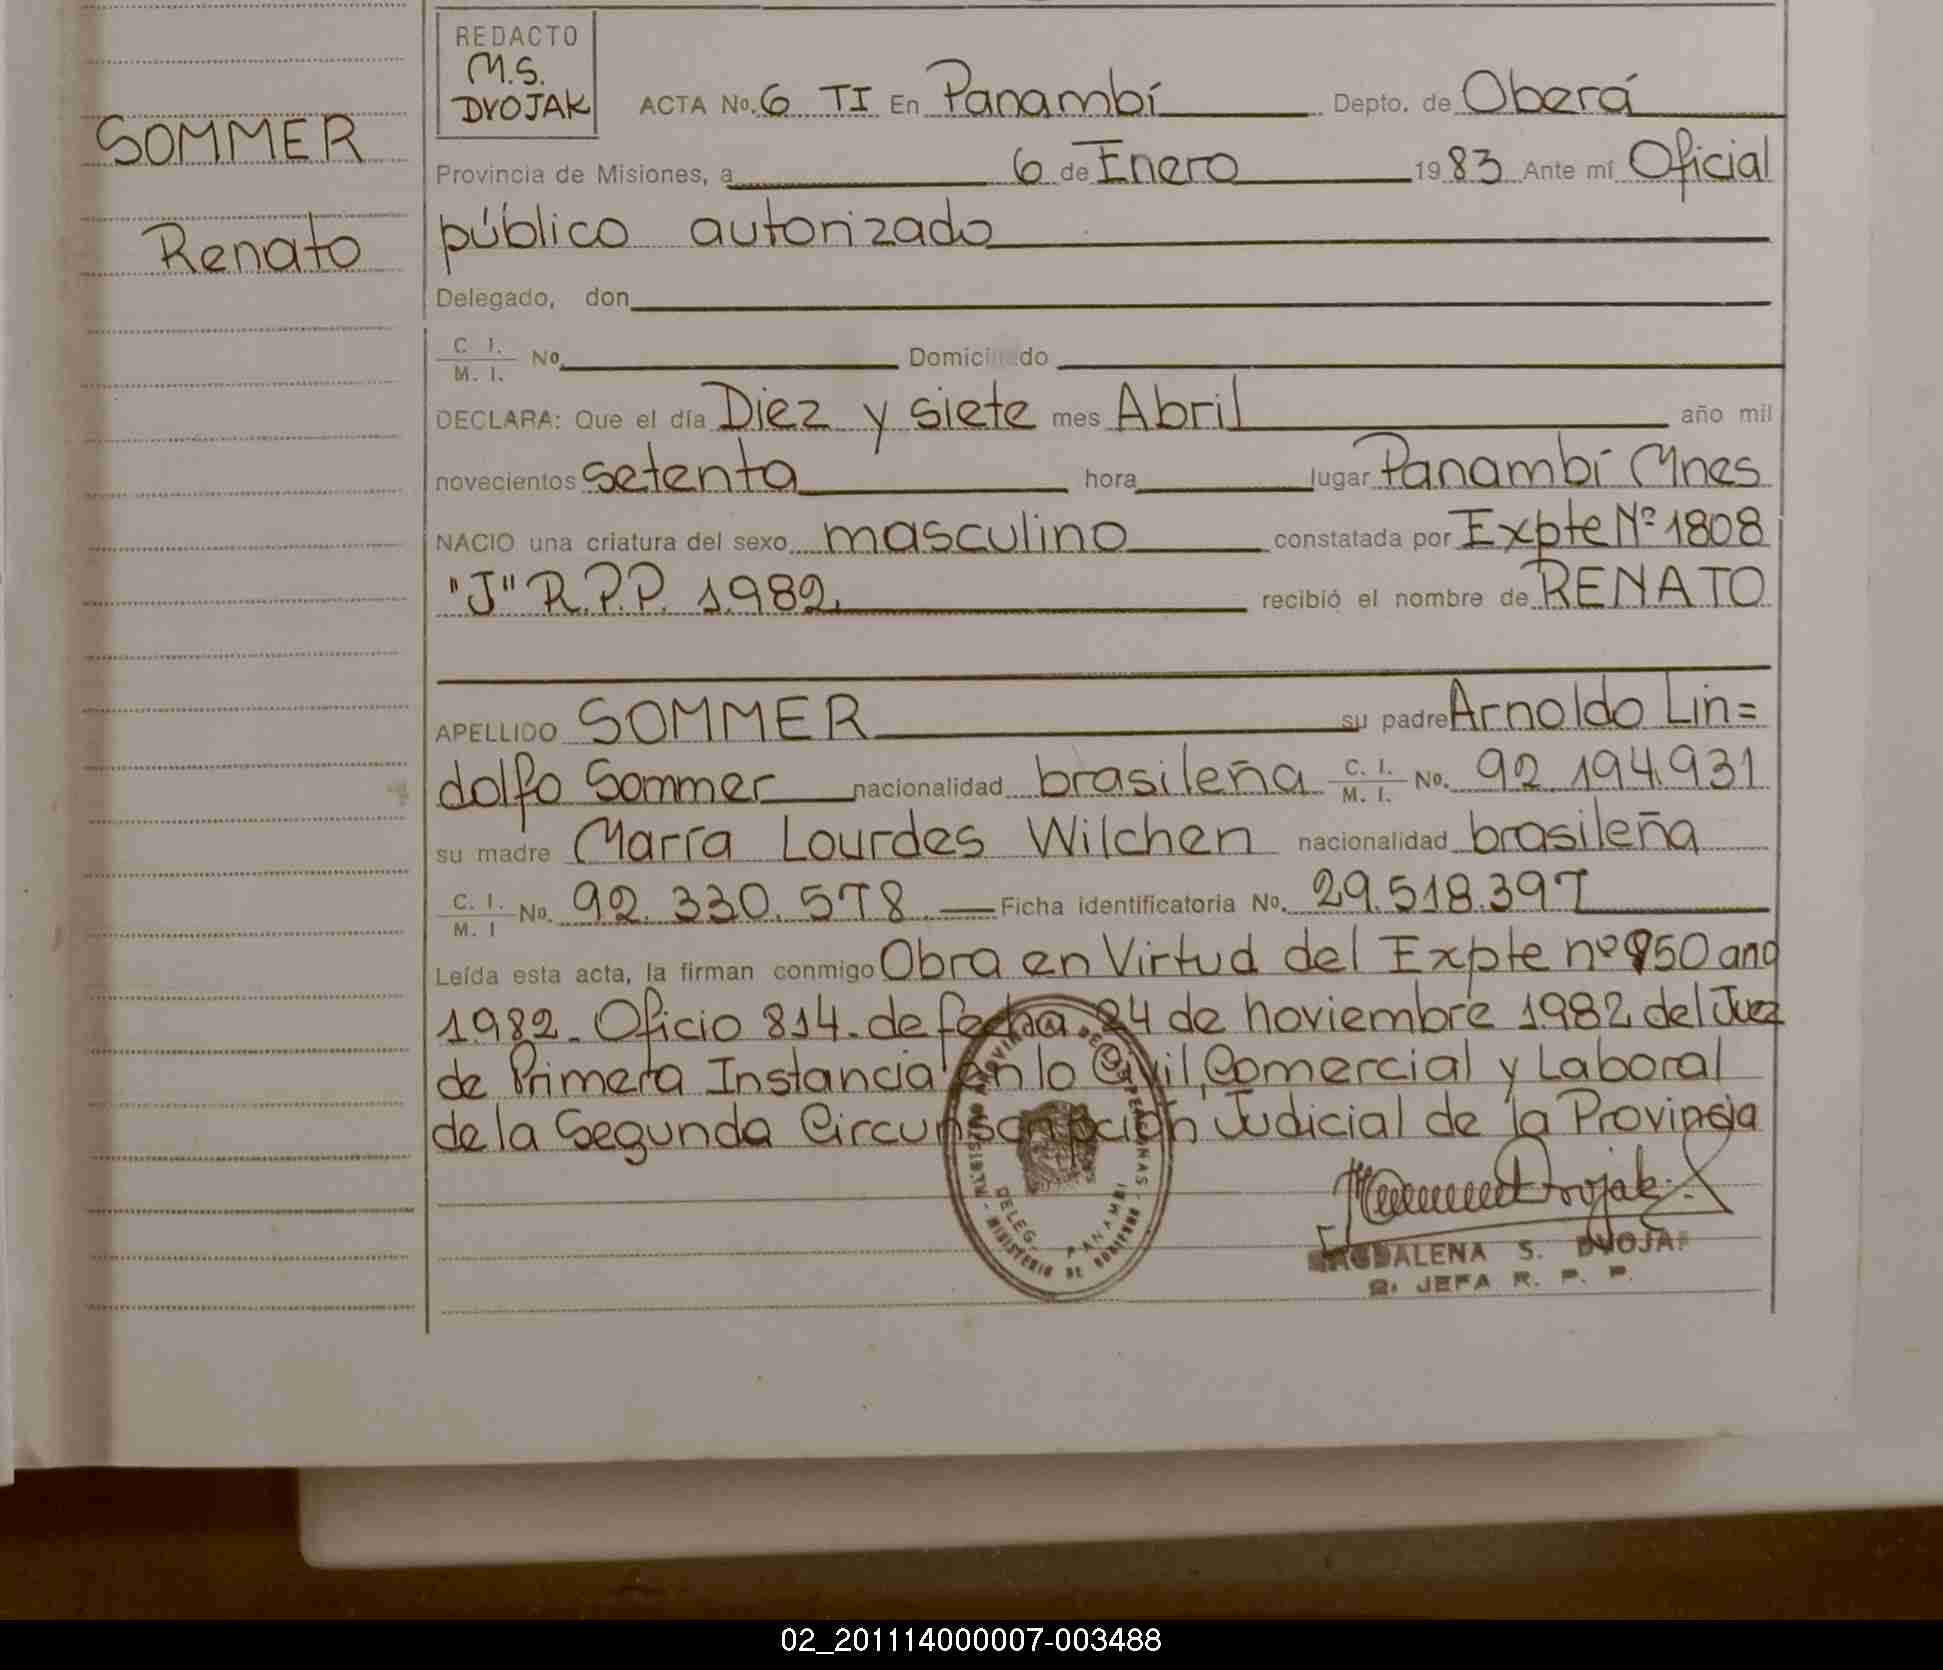 REDACTO
M.S.
DVOJAK
ACTA No. 6 TI En Panambí Depto. de Oberá
SOMMER
Renato
Provincia de Misiones, a 6 de Enero 1983 Ante mí Oficial
público autorizado
Delegado, don
C. I.
M. I. No Domiciliado
DECLARA: Que el día Diez y siete mes Abril año mil
novecientos setenta hora lugar Panambí Mnes
NACIO una criatura del sexo masculino constatada por Expte Nº 1808
"J" R.P.P. 1.982. recibió el nombre de RENATO
APELLIDO SOMMER su padre Arnoldo Lin=
dolfo Sommer nacionalidad brasileña C. I. M. I. No. 92.194.931
su madre María Lourdes Wilchen nacionalidad brasileña
C. I. M. I No. 92.330.578. Ficha identificatoria No. 29.518.397
Leída esta acta, la firman conmigo Obra en Virtud del Expte nº 950 ano
1.982. Oficio 814. de fecha 24 de noviembre 1.982 del Juez
de Primera Instancia en lo Civil, Comercial y Laboral
de la Segunda Circunscripción Judicial de la Provincia
DELEG. PANAMBI
MINISTERIO DE GOBIERNO
MAGDALENA S. DVOJAK
2. JEFA R. P. P.
02_201114000007-003488